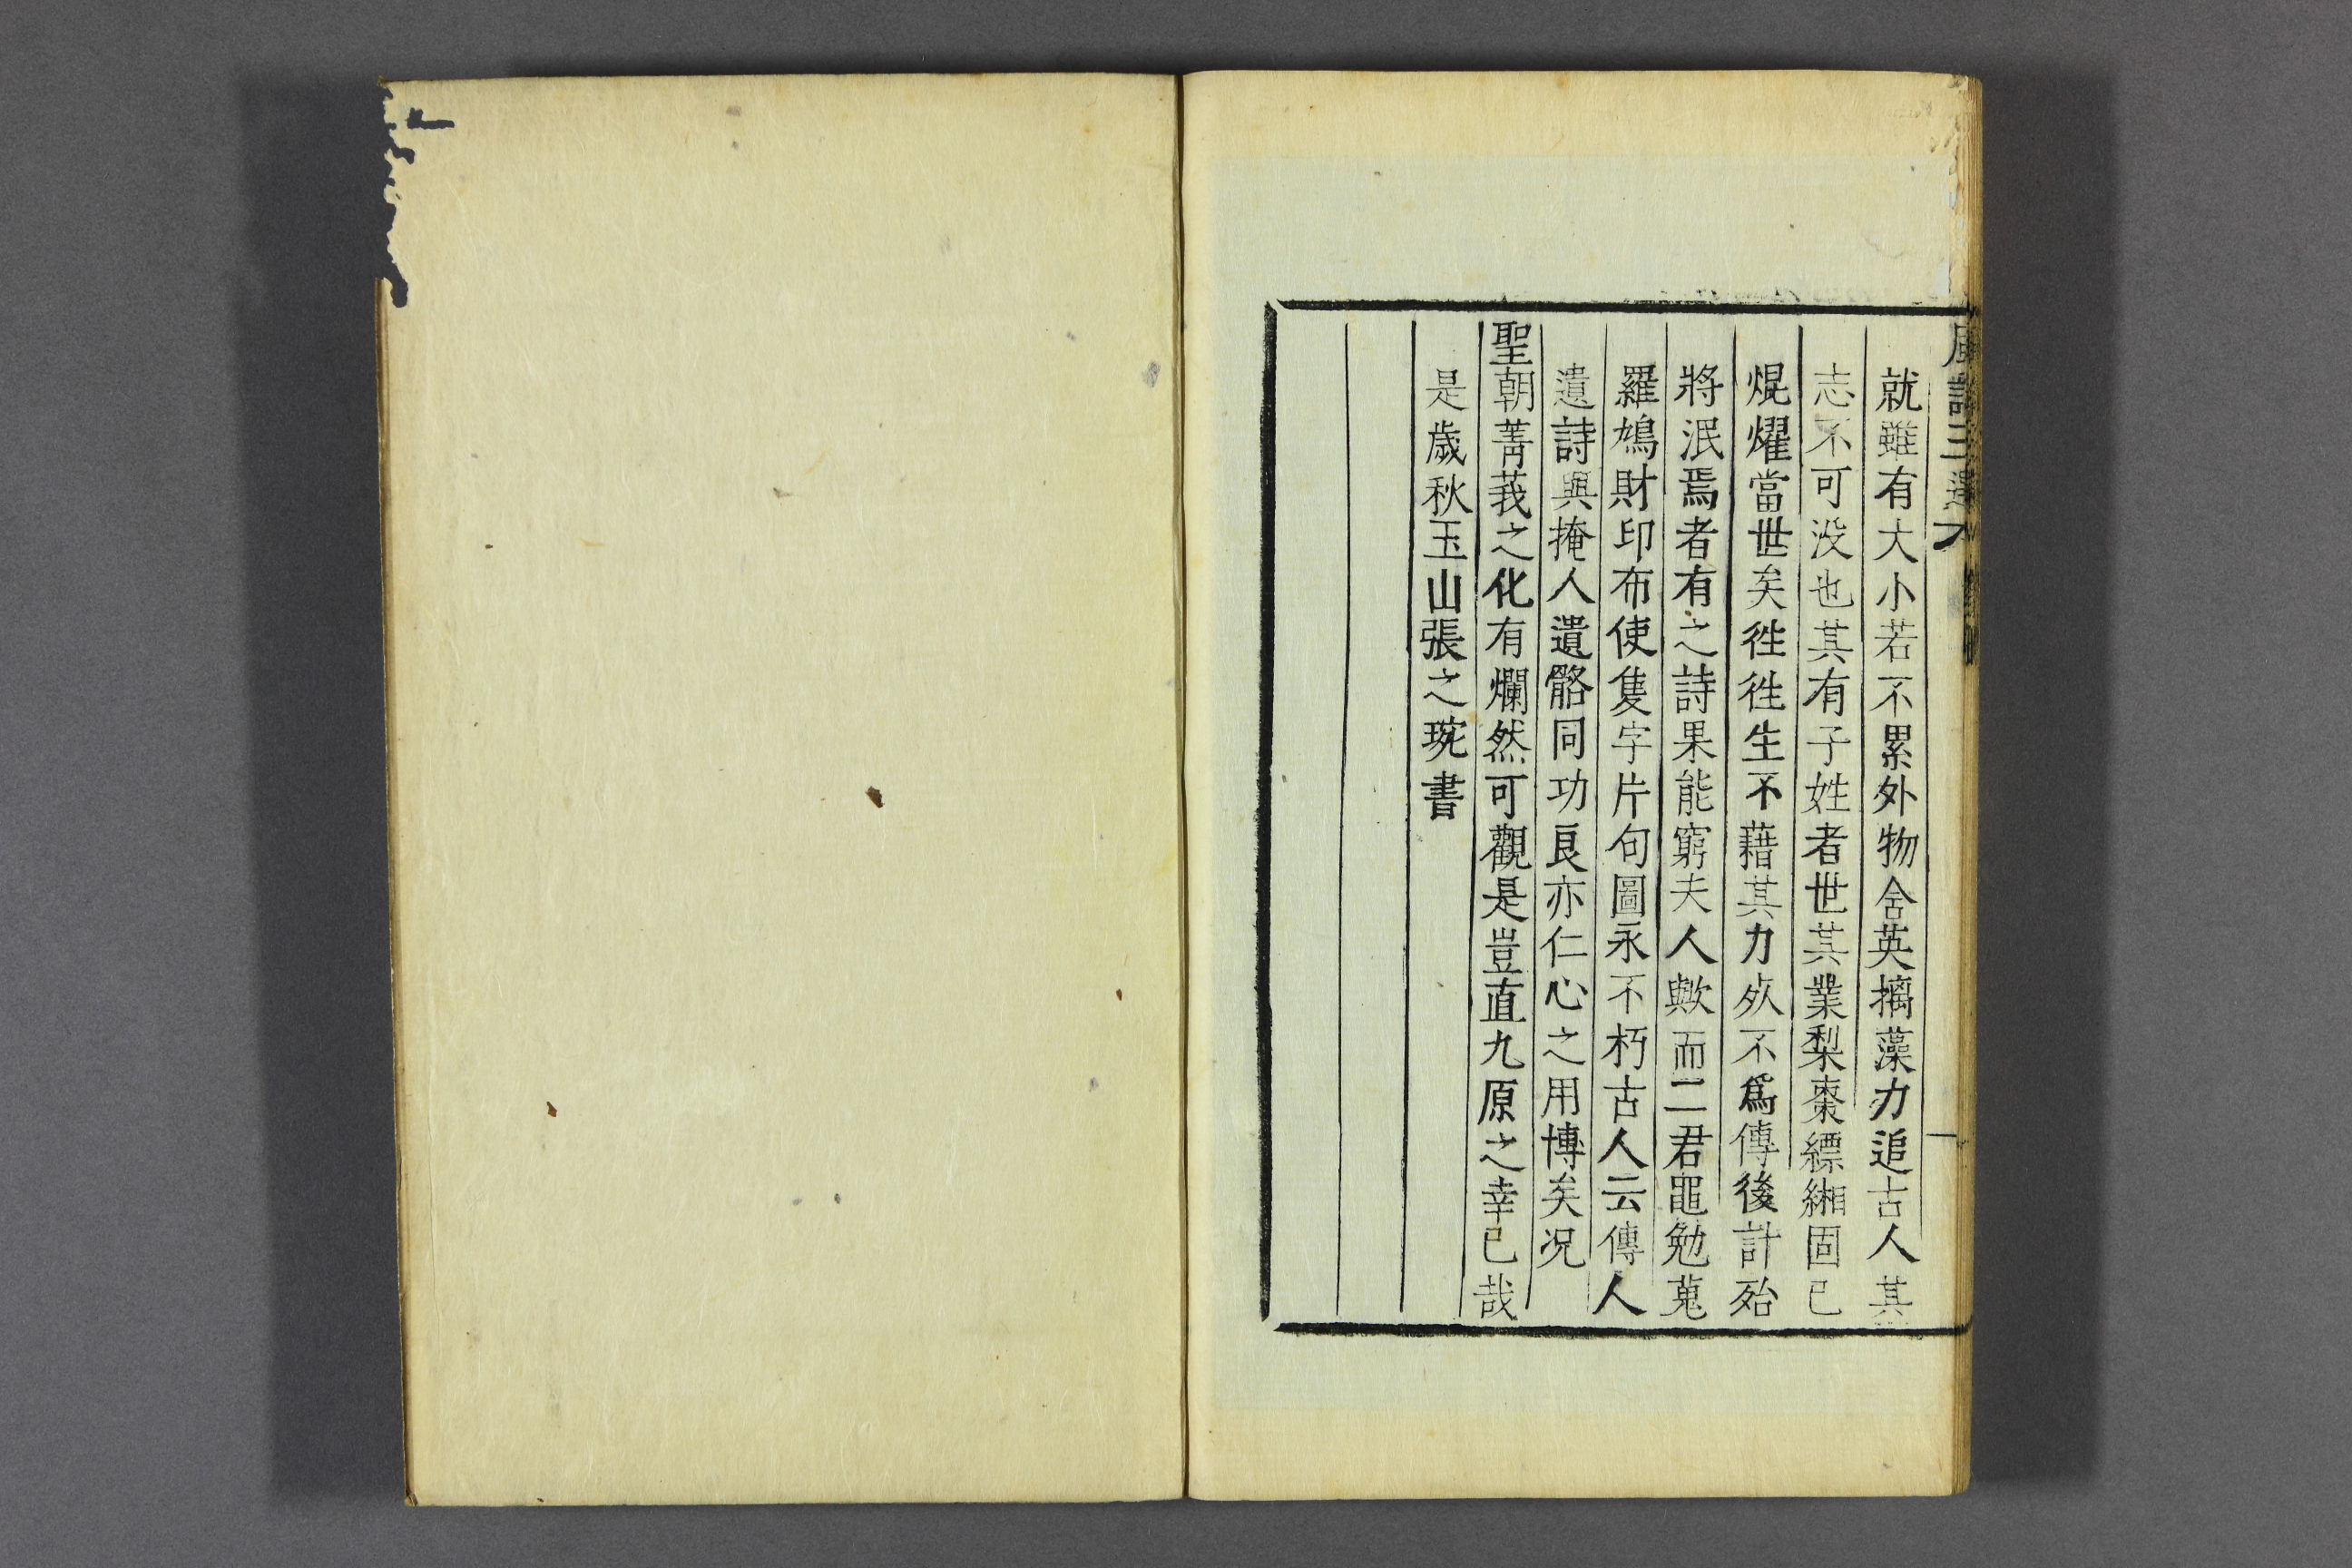 就雖有大小若不累外物含英摛藻力追古人其
志不可没也其有子姓者世其業梨棗縹緗固已
焜燿當世矣徃徃生不藉其力殁不爲傳後計殆
將泯焉者有之詩果能窮夫人歟而二君黽勉蒐
羅鳩財印布使隻字片句圖永不朽古人云傳人
遺詩與掩人遺骼同功良亦仁心之用博矣况
聖朝菁莪之化有爛然可觀是豈直九原之幸已哉
是歲秋玉山張之琬書